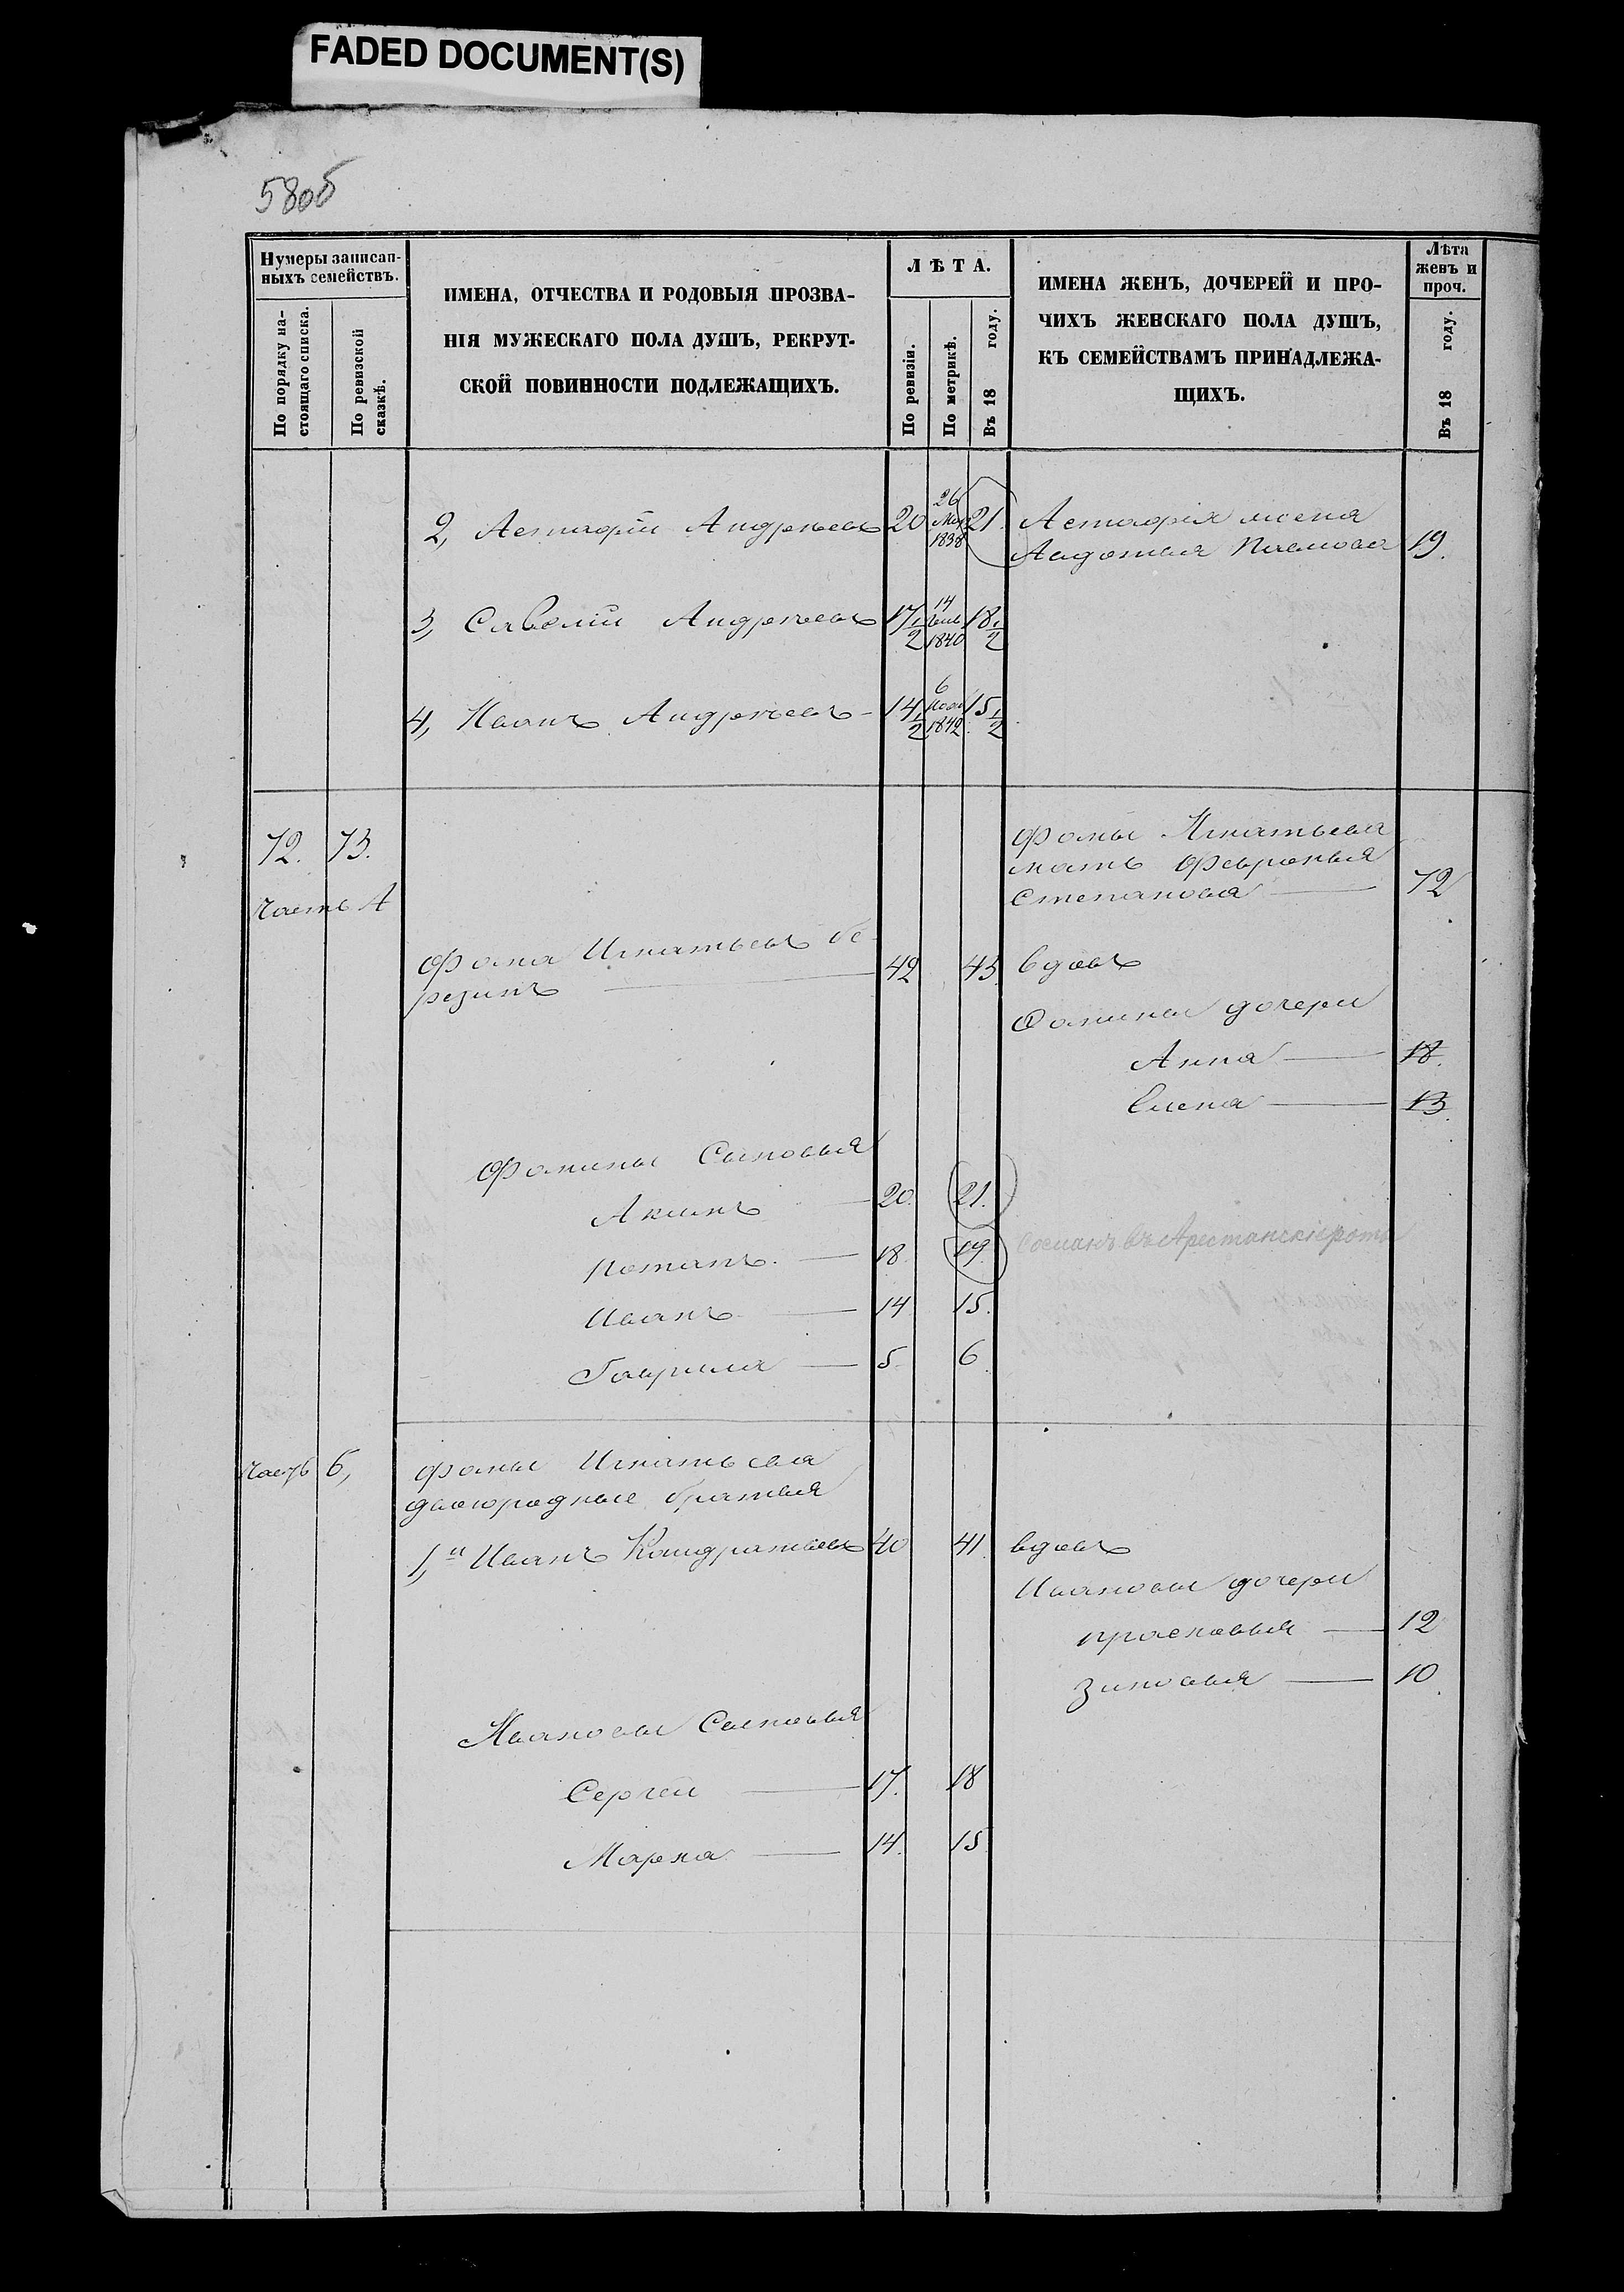 FADED DOCUMENT(S)
58об
Нумеры записан-
ныхъ семействъ.
По порядку на-
стоящаго списка.
По ревизской
сказкѣ.
ИМЕНА, ОТЧЕСТВА И РОДОВЫЯ ПРОЗВА-
НІЯ МУЖЕСКАГО ПОЛА ДУШЪ, РЕКРУТ-
СКОЙ ПОВИННОСТИ ПОДЛЕЖАЩИХЪ.
ЛѢТА.
По ревизіи.
По метрикѣ.
Въ 18 году.
ИМЕНА ЖЕНЪ, ДОЧЕРЕЙ И ПРО-
ЧИХЪ ЖЕНСКАГО ПОЛА ДУШЪ,
КЪ СЕМЕЙСТВАМЪ ПРИНАДЛЕЖА-
ЩИХЪ.
Лѣта
женъ и
проч.
Въ 18 году.
2, Астафій Андреевъ 20 26 1838 21. Астафія жена
Авдотья Павлова 19.
3, Савелій Андреевъ 17 1/2 14 1840 18 1/2
4, Иванъ Андреевъ 14 1/2 6 1842 15 1/2
72. 73.
Фомы Игнатьева
мать Февронья
Степанова 72
Часть А
Фома Игнатьевъ Бе-
резинъ 42 43. вдовъ
Фомины дочери
Анна 18.
Елена 13.
Фомины Сыновья
Акимъ 20. 21.
Потапъ 18 19. Сосланъ въ Арестанскія роты
Иванъ 14 15.
Гаврила 5. 6
Часть б,
Фомы Игнатьева
двоюродные братья
1,й Иванъ Кандратьевъ 40 41. вдовъ
Ивановы дочери
Прасковья 12
Зиновья 10.
Ивановы Сыновья
Сергей 17. 18
Марка 14. 15